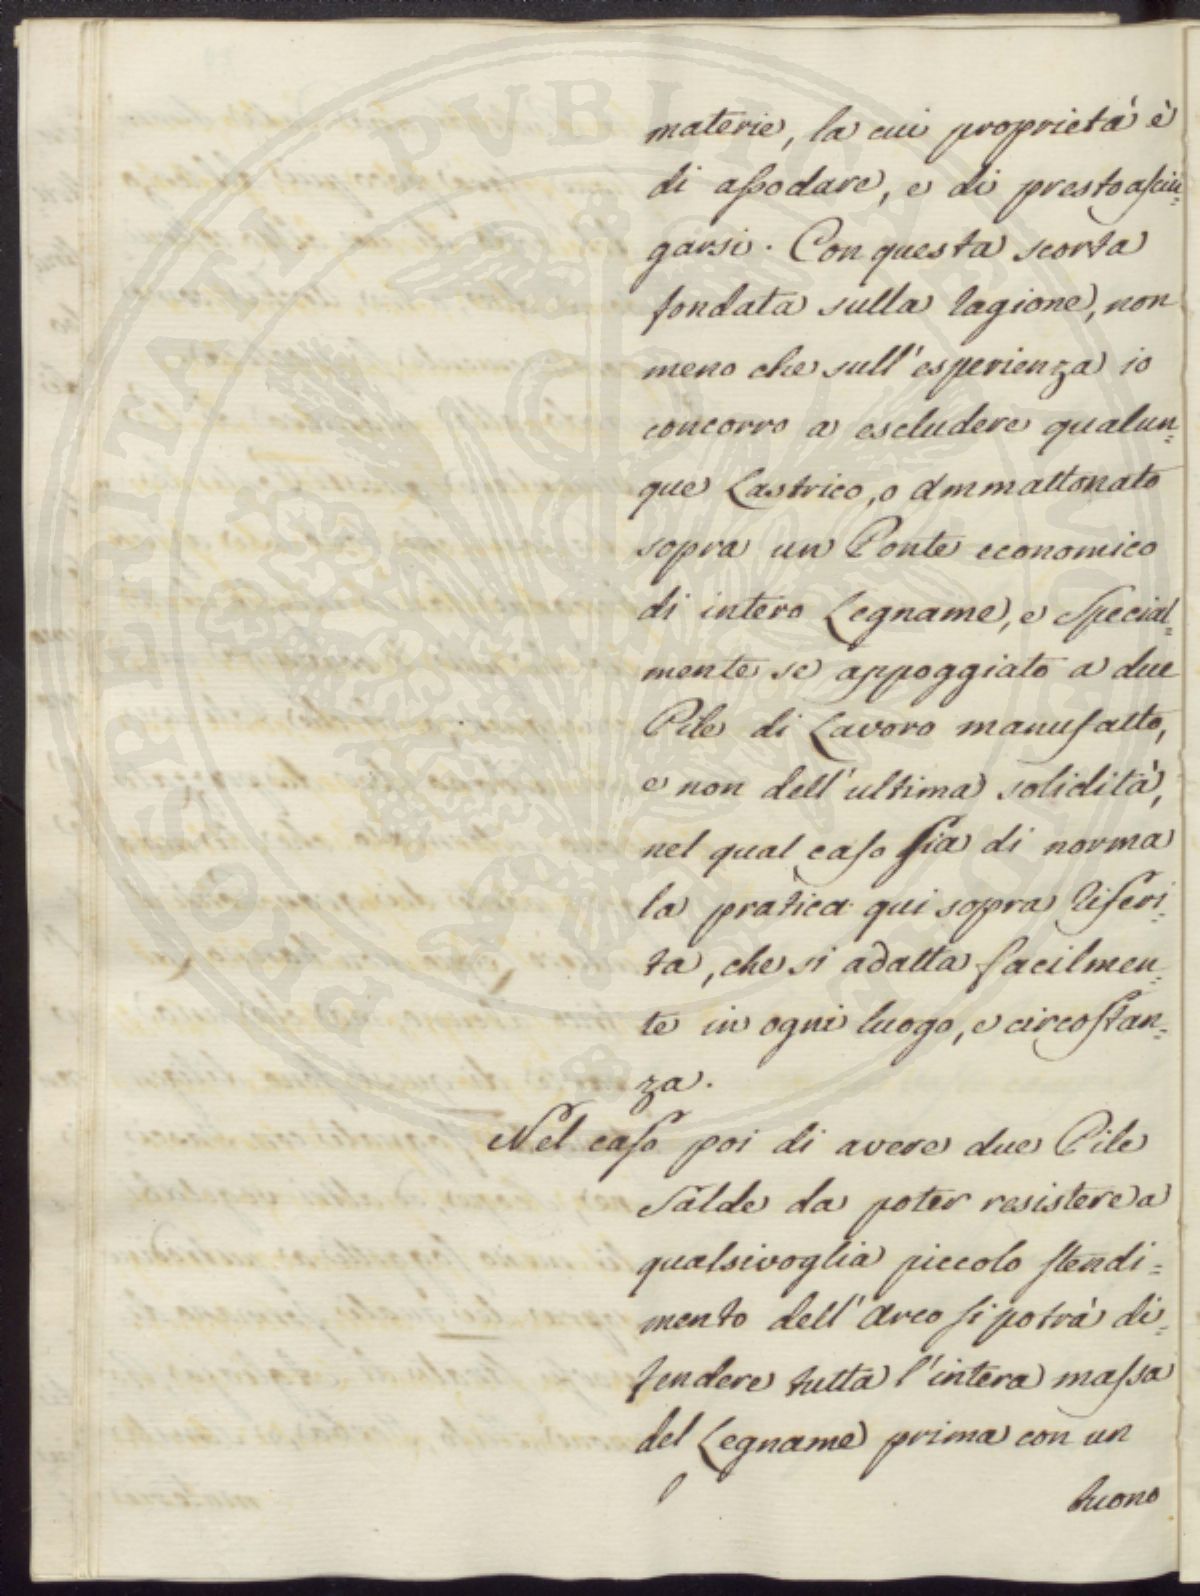 materie, la cui proprietà è
di assodare, e di presto asciu=
garsi. Con questa scorta
fondata sulla ragione, non
meno che sull'esperienza io
concorro a escludere qualun=
que Lastrico, o Ammattonato
sopra un Ponte economico
di intero Legname, e special=
mente se appoggiato a due
Pile di Lavoro manufatto,
e non dell'ultima solidità,
nel qual caso sia di norma
la pratica qui sopra riferi=
ta, che si adatta facilmen=
te in ogni luogo, e circostan=
za.
Nel caso poi di avere due Pile
salde da poter resistere a
qualsivoglia piccolo stendi=
mento dell'Arco si potrà di=
fendere tutta l'intera massa
del Legname prima con un
buono